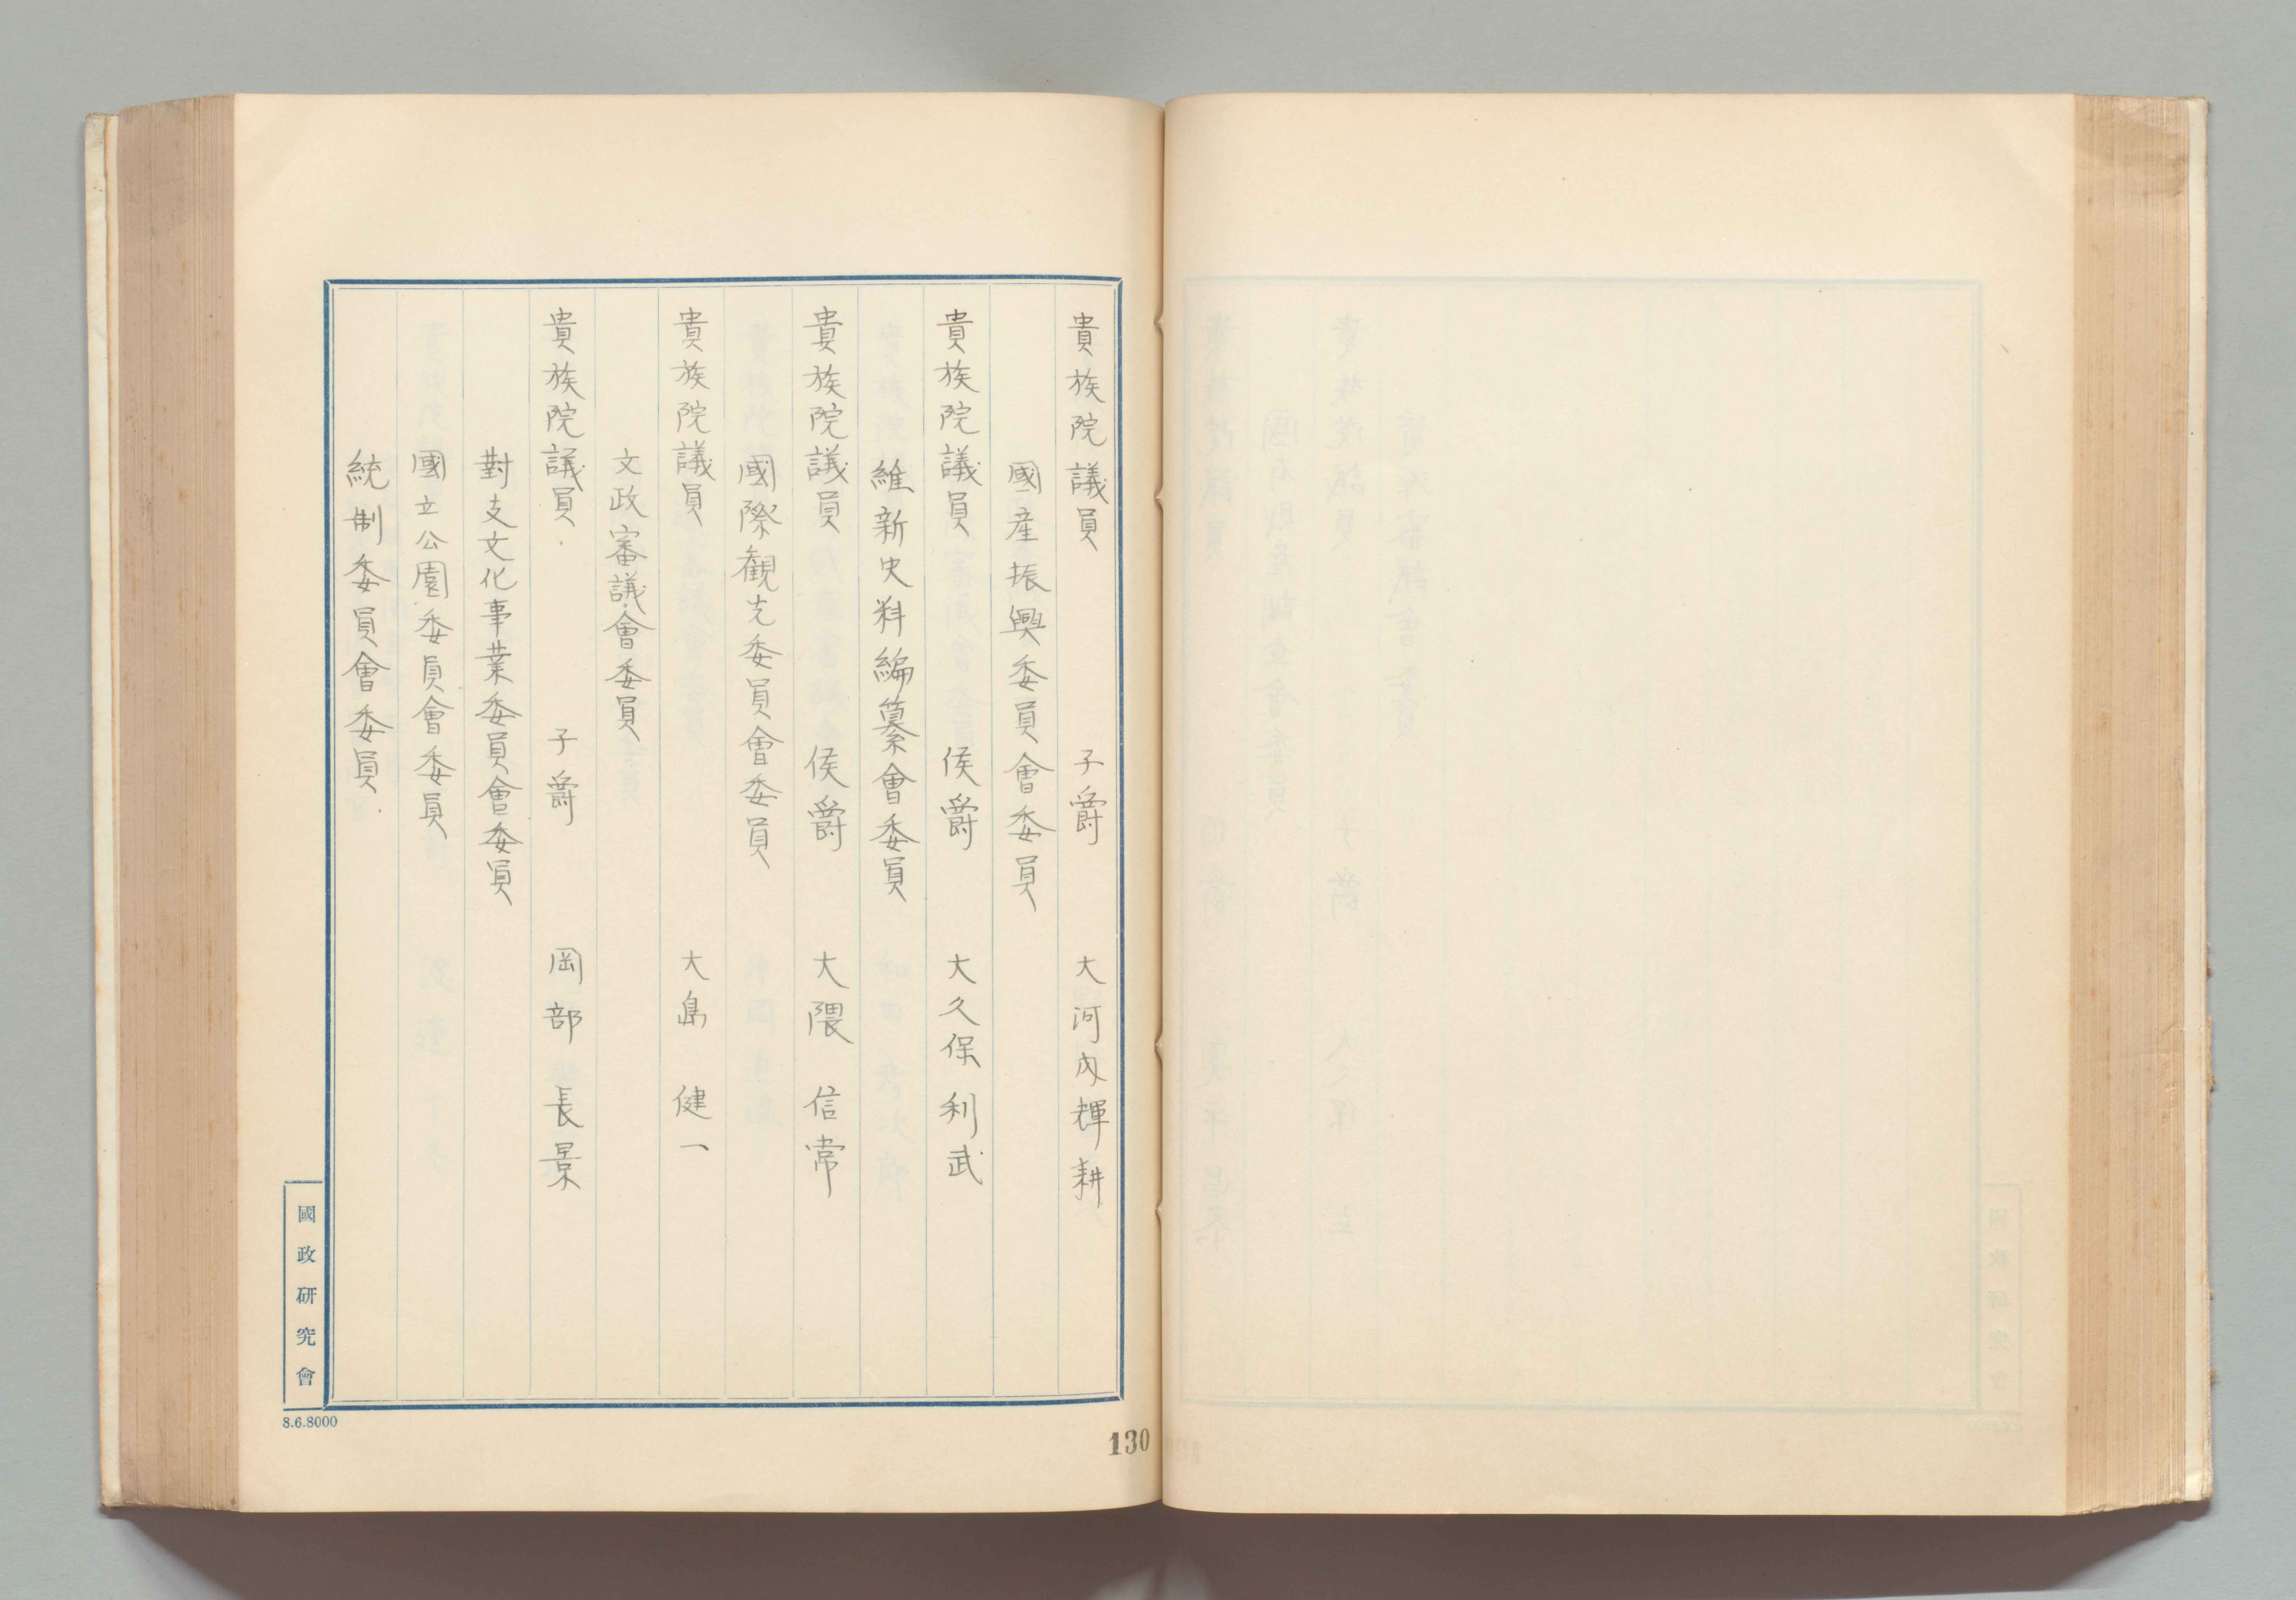 貴族院議員 子爵 大河内輝耕
國産振興委員會委員
貴族院議員 侯爵 大久保利武
維新史料編纂會委員
貴族院議員 侯爵 大隈信常
國際観光委員會委員
貴族院議員 大島健一
文政審議會委員
貴族院議員 子爵 岡部長景
對支文化事業委員會委員
國立公園委員會委員
統制委員會委員.
國政研究會
8.6.8000
130